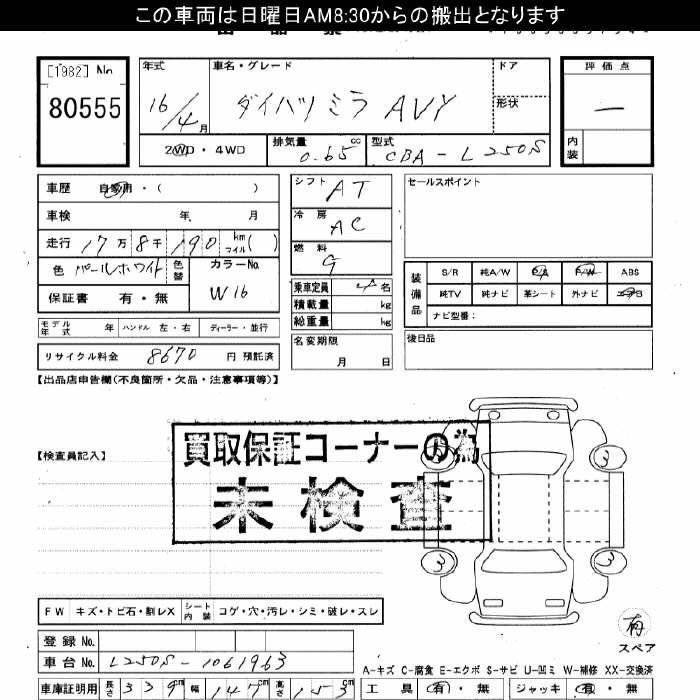 この車両は日曜日AM8:30からの搬出となります
[1982] No
80555
年式 16/4月
車名・グレード ダイハツ ミラ AVY
ドア
形状
評価点 —
内装
2WD・4WD
排気量 0.65 cc
型式 CBA-L250S
車歴 自家用・( )
車検 年 月
走行 17万8千190 km マイル( )
色 パールホワイト 色替
カラーNo. W16
保証書 有・無
モデル年式 年 ハンドル 左・右 ディーラー・並行
リサイクル料金 8670 円 預託済
シフト AT
冷房 AC
燃料 G
乗車定員 4名
積載量 kg
総重量 kg
名変期限 月 日
セールスポイント
装備品 S/R 純A/W P/S P/W ABS
純TV 純ナビ 革シート 外ナビ エアB
ナビ型番:
後日品
【出品店申告欄(不良箇所・欠品・注意事項等)】
【検査員記入】
買取保証コーナーの為
未検査
3 3 3
FW キズ・トビ石・割レX シート内装 コゲ・穴・汚レ・シミ・破レ・スレ
登録 No.
車台 No. L250S-1061963
車庫証明用 長さ 339cm 幅 147cm 高さ 153cm
有
スペア
A-キズ C-腐食 E-エクボ S-サビ U-凹ミ W-補修 XX-交換済
工具 有・無 ジャッキ 有・無